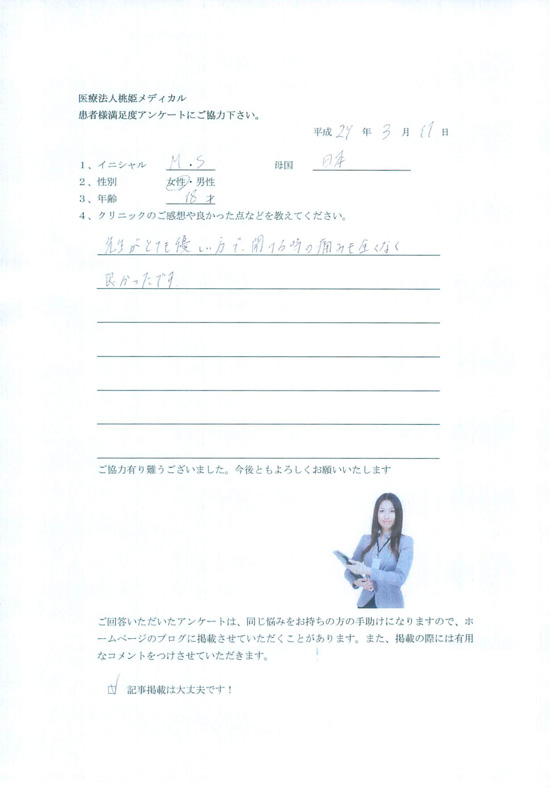 医療法人桃姫メディカル
患者様満足度アンケートにご協力下さい。
平成 29 年 3 月 11 日
1、イニシャル M.S 母国 日本
2、性別 女性・男性
3、年齢 18 才
4、クリニックのご感想や良かった点などを教えてください。
先生がとても優しい方で、開ける時の痛みも全くなく
良かったです。
ご協力有り難うございました。今後ともよろしくお願いいたします
ご回答いただいたアンケートは、同じ悩みをお持ちの方の手助けになりますので、ホ
ームページのブログに掲載させていただくことがあります。また、掲載の際には有用
なコメントをつけさせていただきます。
記事掲載は大丈夫です！